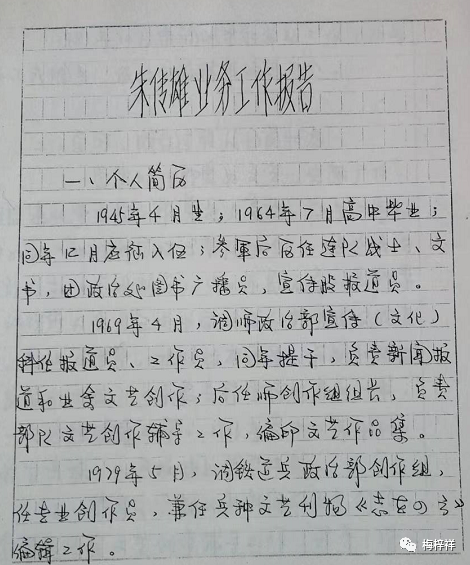 朱传雄业务工作报告
一、个人简历
1945年4月生；1964年7月高中毕业；
同年12月应征入伍；参军后历任连队战士、文
书，团政治处图书广播员，宣传股报道员。
1969年4月，调师政治部宣传（文化）
科任报道员、工作员，同年提干，负责新闻报
道和业余文艺创作；后任师创作组组长，负责
部队文艺创作辅导工作，编印文艺作品集。
1979年5月，调铁道兵政治部创作组，
任专业创作员，兼任兵种文艺刊物《志在四方》
编辑工作。
梅梓祥